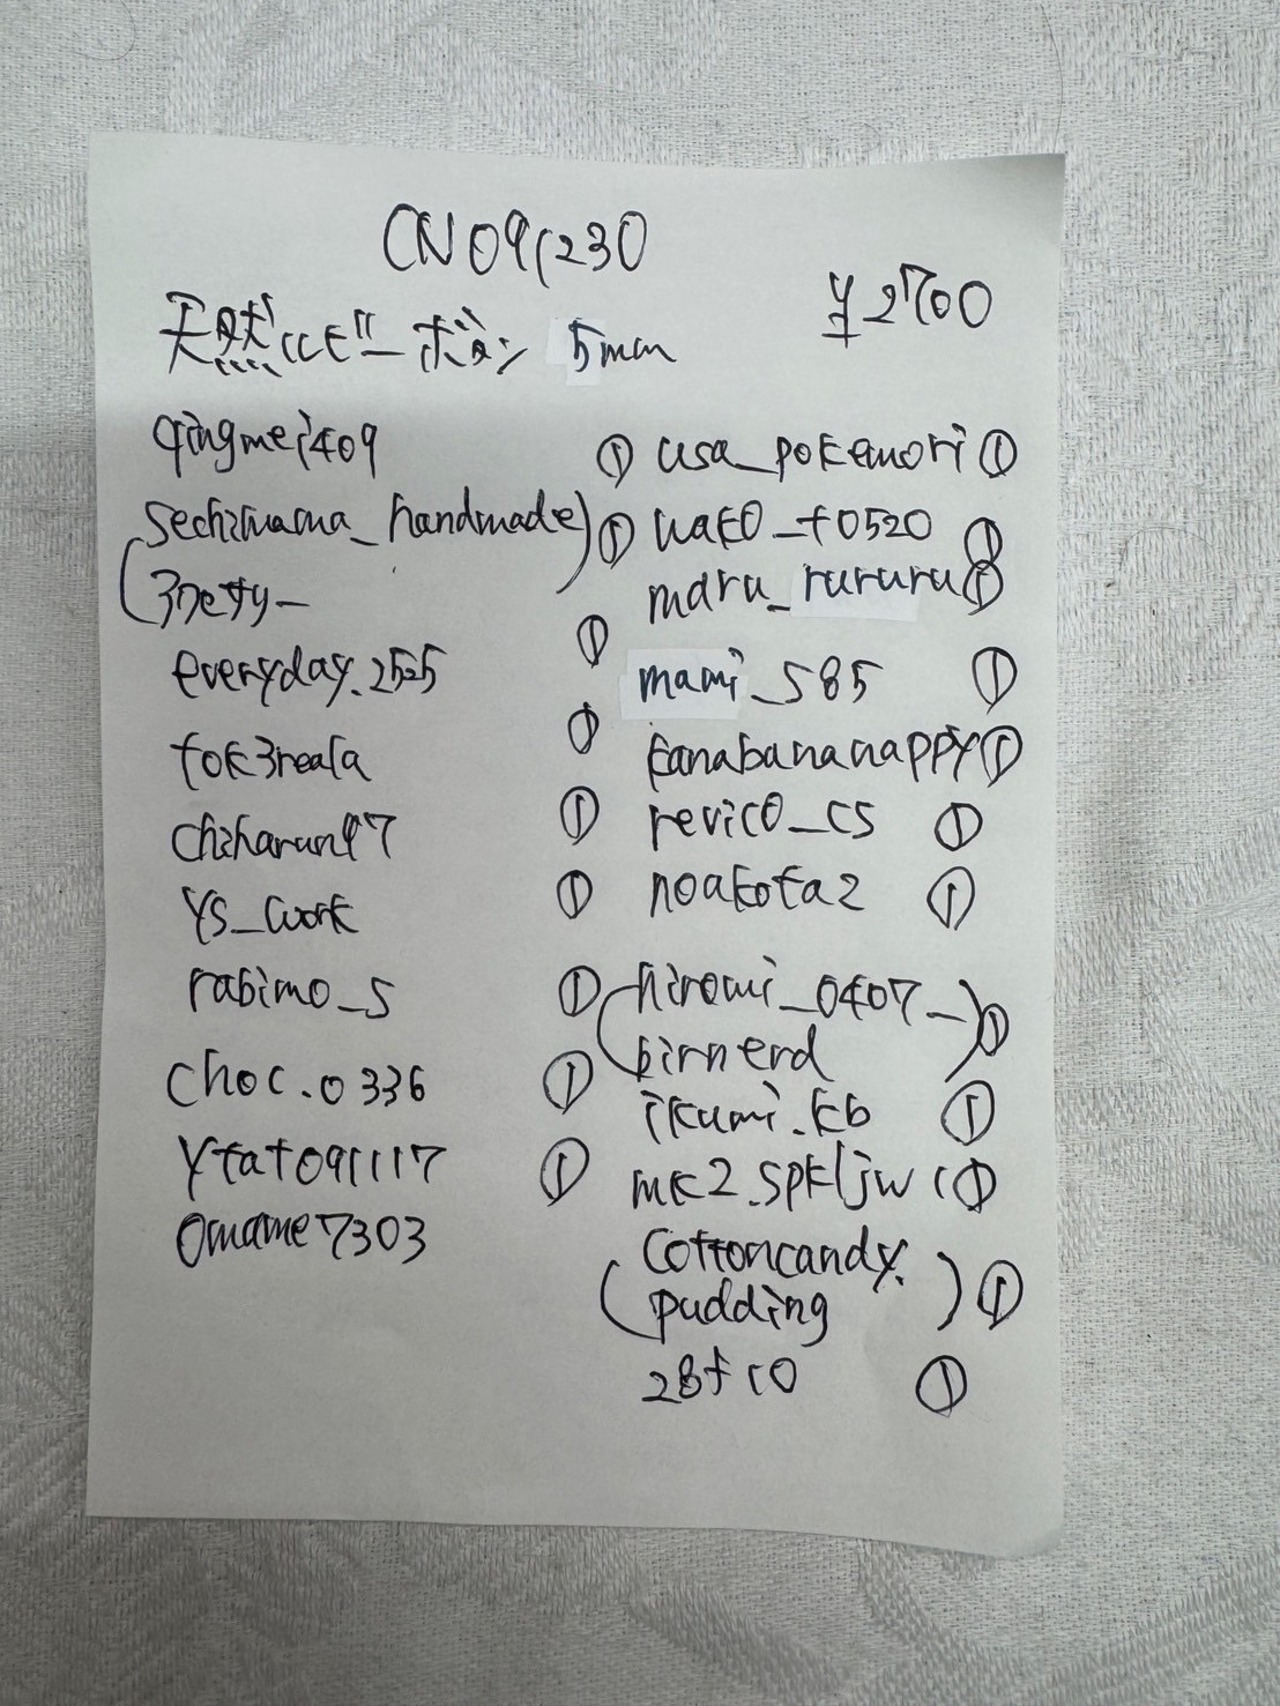 CN091230
¥2700
天然ルビーボタン 5mm
qingmei409 ①
sechimama_handmade ①
everyday.2525 ①
tok3reala ①
chiharun97 ①
ys_work ①
rabimo_s ①
choc.0336 ①
ytat091117 ①
omame7303
usa_pokemori ①
wako_t0520 ①
maru_rururu ①
mami_585 ①
kanabananappy ①
revico_cs ①
noakota2 ①
(hiromi_0407_
birnerd) ①
ikumi.kb ①
mk2.spkljw ①
(cottoncandy.
pudding) ①
①